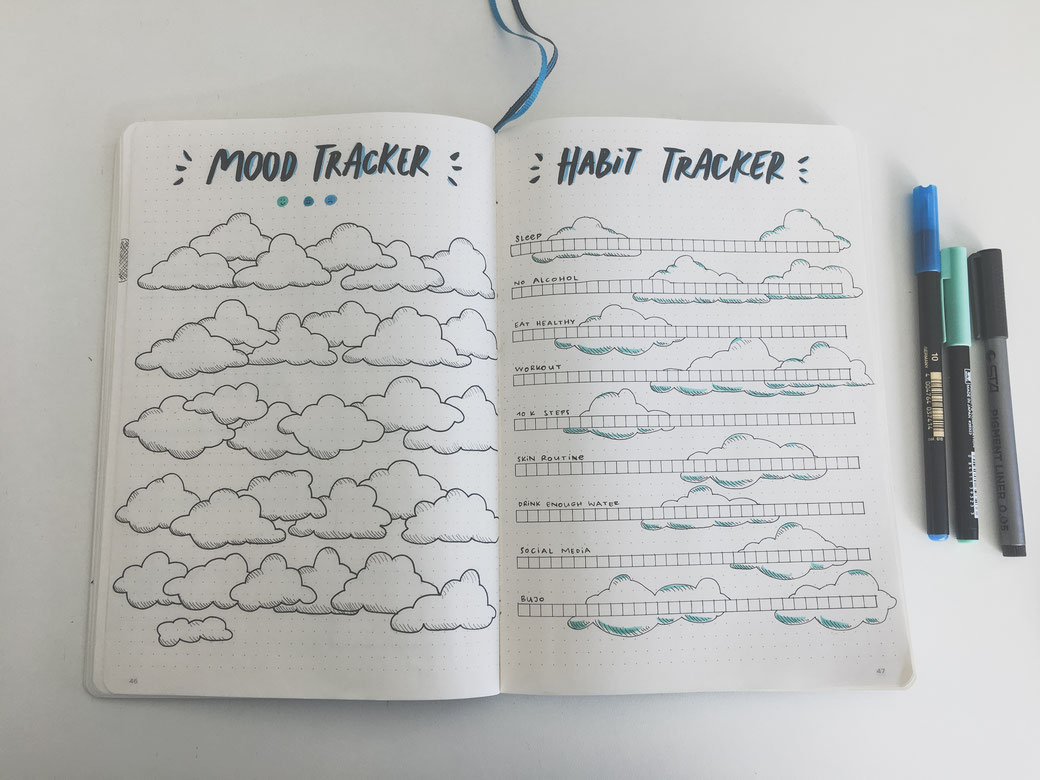 MOOD TRACKER
46
HABIT TRACKER
SLEEP
NO ALCOHOL
EAT HEALTHY
WORKOUT
10 K STEPS
SKIN ROUTINE
DRINK ENOUGH WATER
SOCIAL MEDIA
BUJO
47
10
PIGMENT LINER 0.05